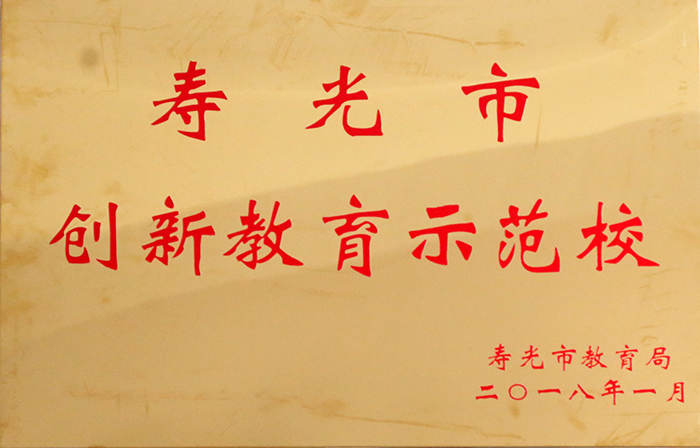 寿光市
创新教育示范校
寿光市教育局
二〇一八年一月